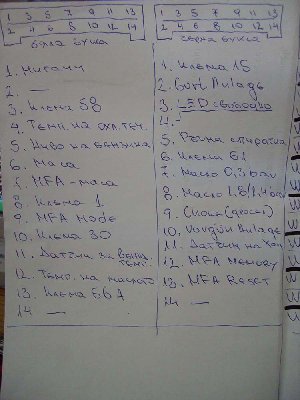 1 3 5 7 9 11 13
2 4 6 8 10 12 14
бяла букса
1.
2. —
3. Клема 58
4. Темп. на охл. теч.
5. Ниво на бензина
6. Маса
7. MFA - маса
8. Клема 1
9. MFA Mode
10. Клема 30
11. Датчик на
темп.
12. Темп. на маслото
13. Клема 56А
14 —
1 3 5 7 9 11 13
2 4 6 8 10 12 14
черна букса
1. Клема 15
2.
3. LED
4. -
5. Ръчна спирачка
6. Клема 61
7. Масло 0,3 bar
8. Масло 1.8/1.4 bar
9.
10.
11. Датчик на
12. MFA Memory
13. MFA Reset
14 —